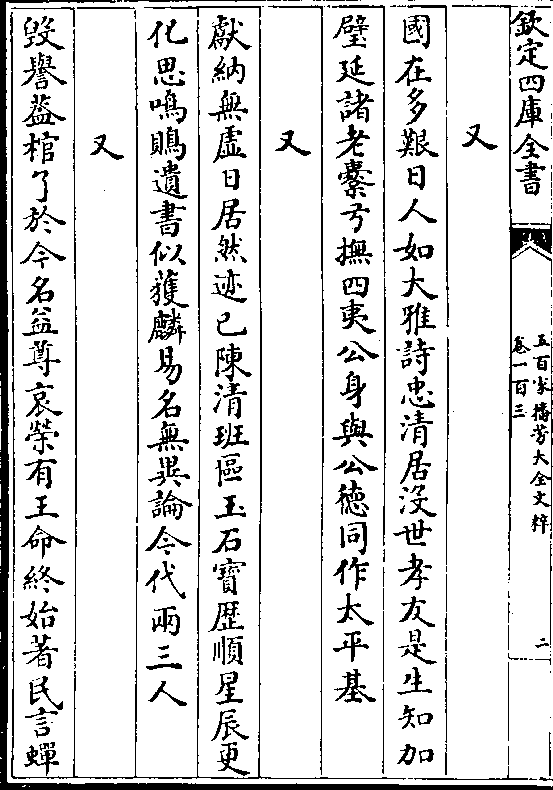 欽定四庫全書
五百家播芳大全文粹
卷一百三
二
又
國在多艱日人如大雅詩忠清居沒世孝友是生知加
璧延諸老櫜弓撫四夷公身與公德同作太平基
又
獻納無虛日居然迹已陳清班區玉石寶歴順星辰更
化思鳴鵙遺書似獲麟易名無異論今代兩三人
又
毀譽葢棺了於今名益尊哀榮有王命終始著民言蟬